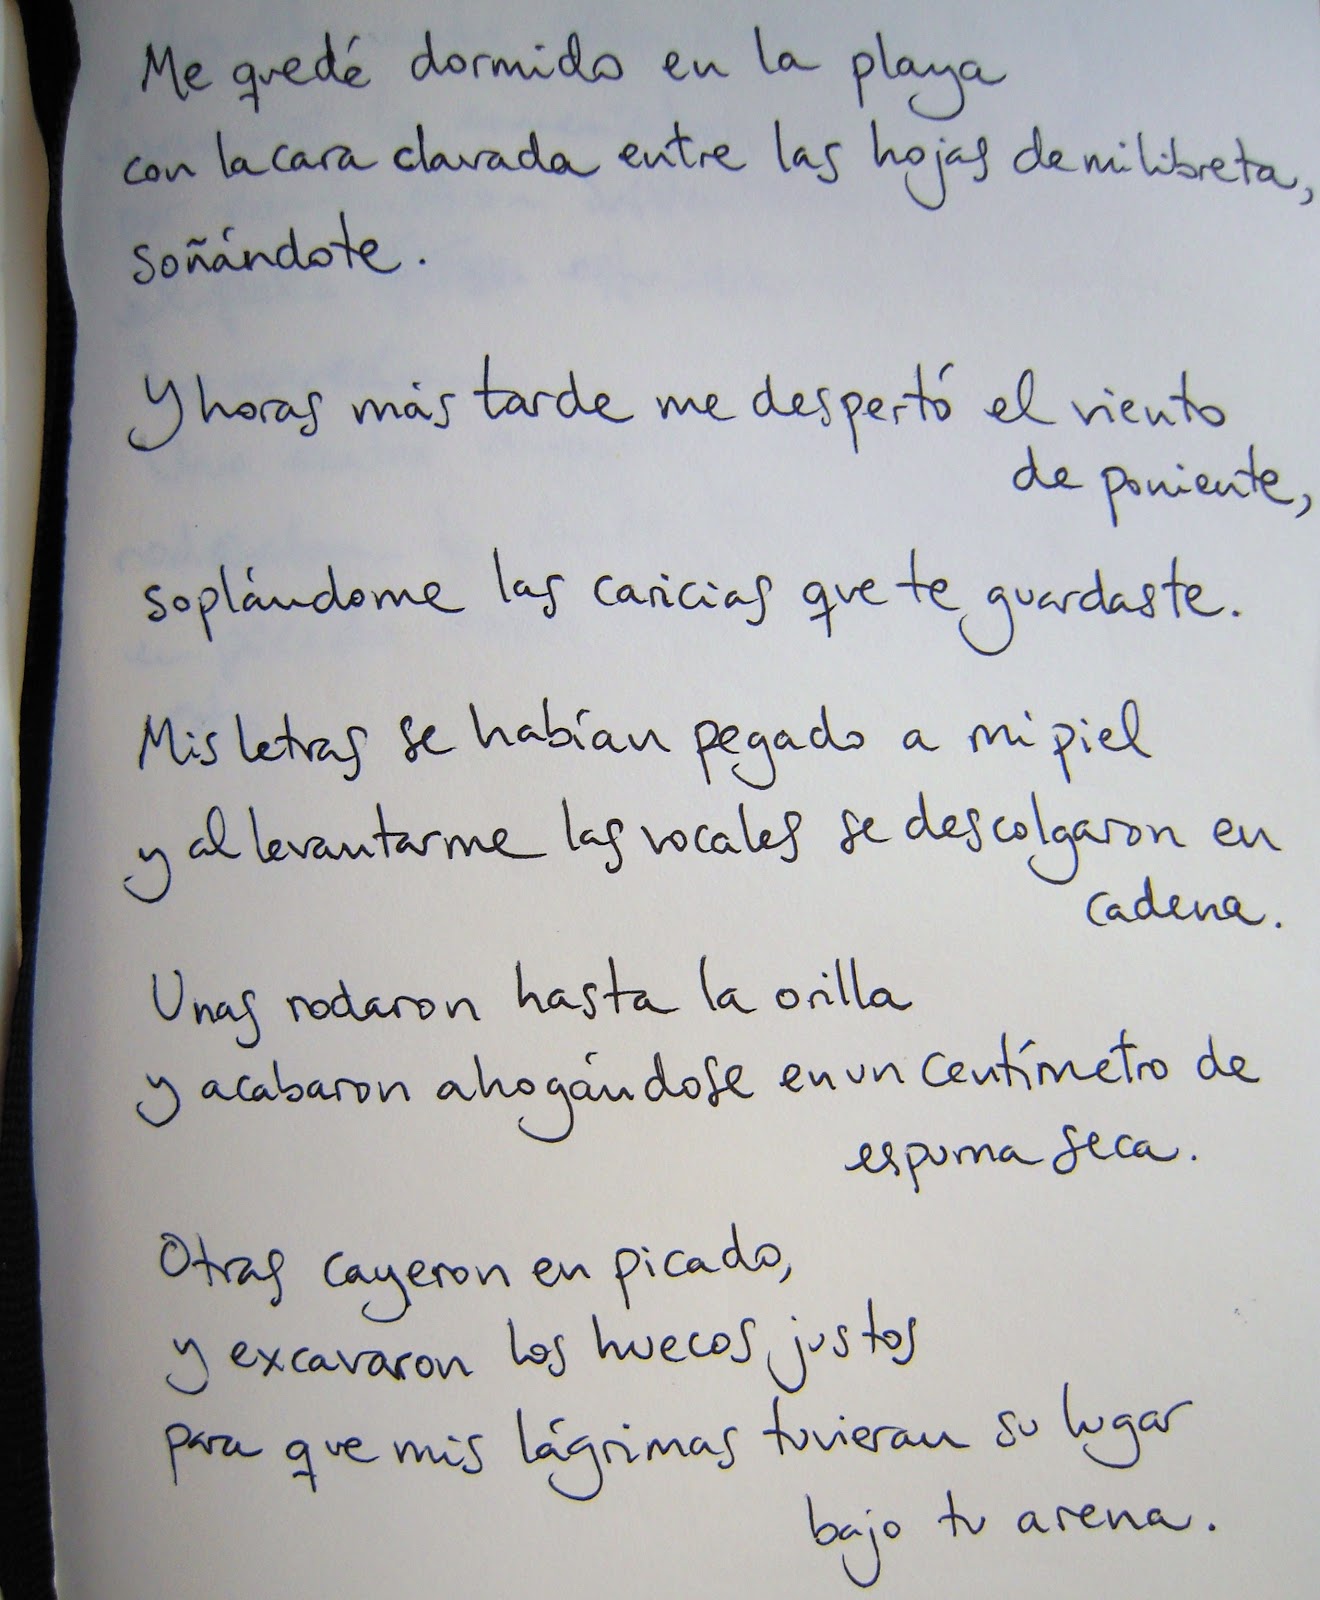 Me quedé dormido en la playa
con la cara clavada entre las hojas de mi libreta,
soñándote.
Y horas más tarde me despertó el viento
de poniente,
soplándome las caricias que te guardaste.
Mis letras se habían pegado a mi piel
y al levantarme las vocales se descolgaron en
cadena.
Unas rodaron hasta la orilla
y acabaron ahogándose en un centímetro de
espuma seca.
Otras cayeron en picado,
y excavaron los huecos justos
para que mis lágrimas tuvieran su lugar
bajo tu arena.